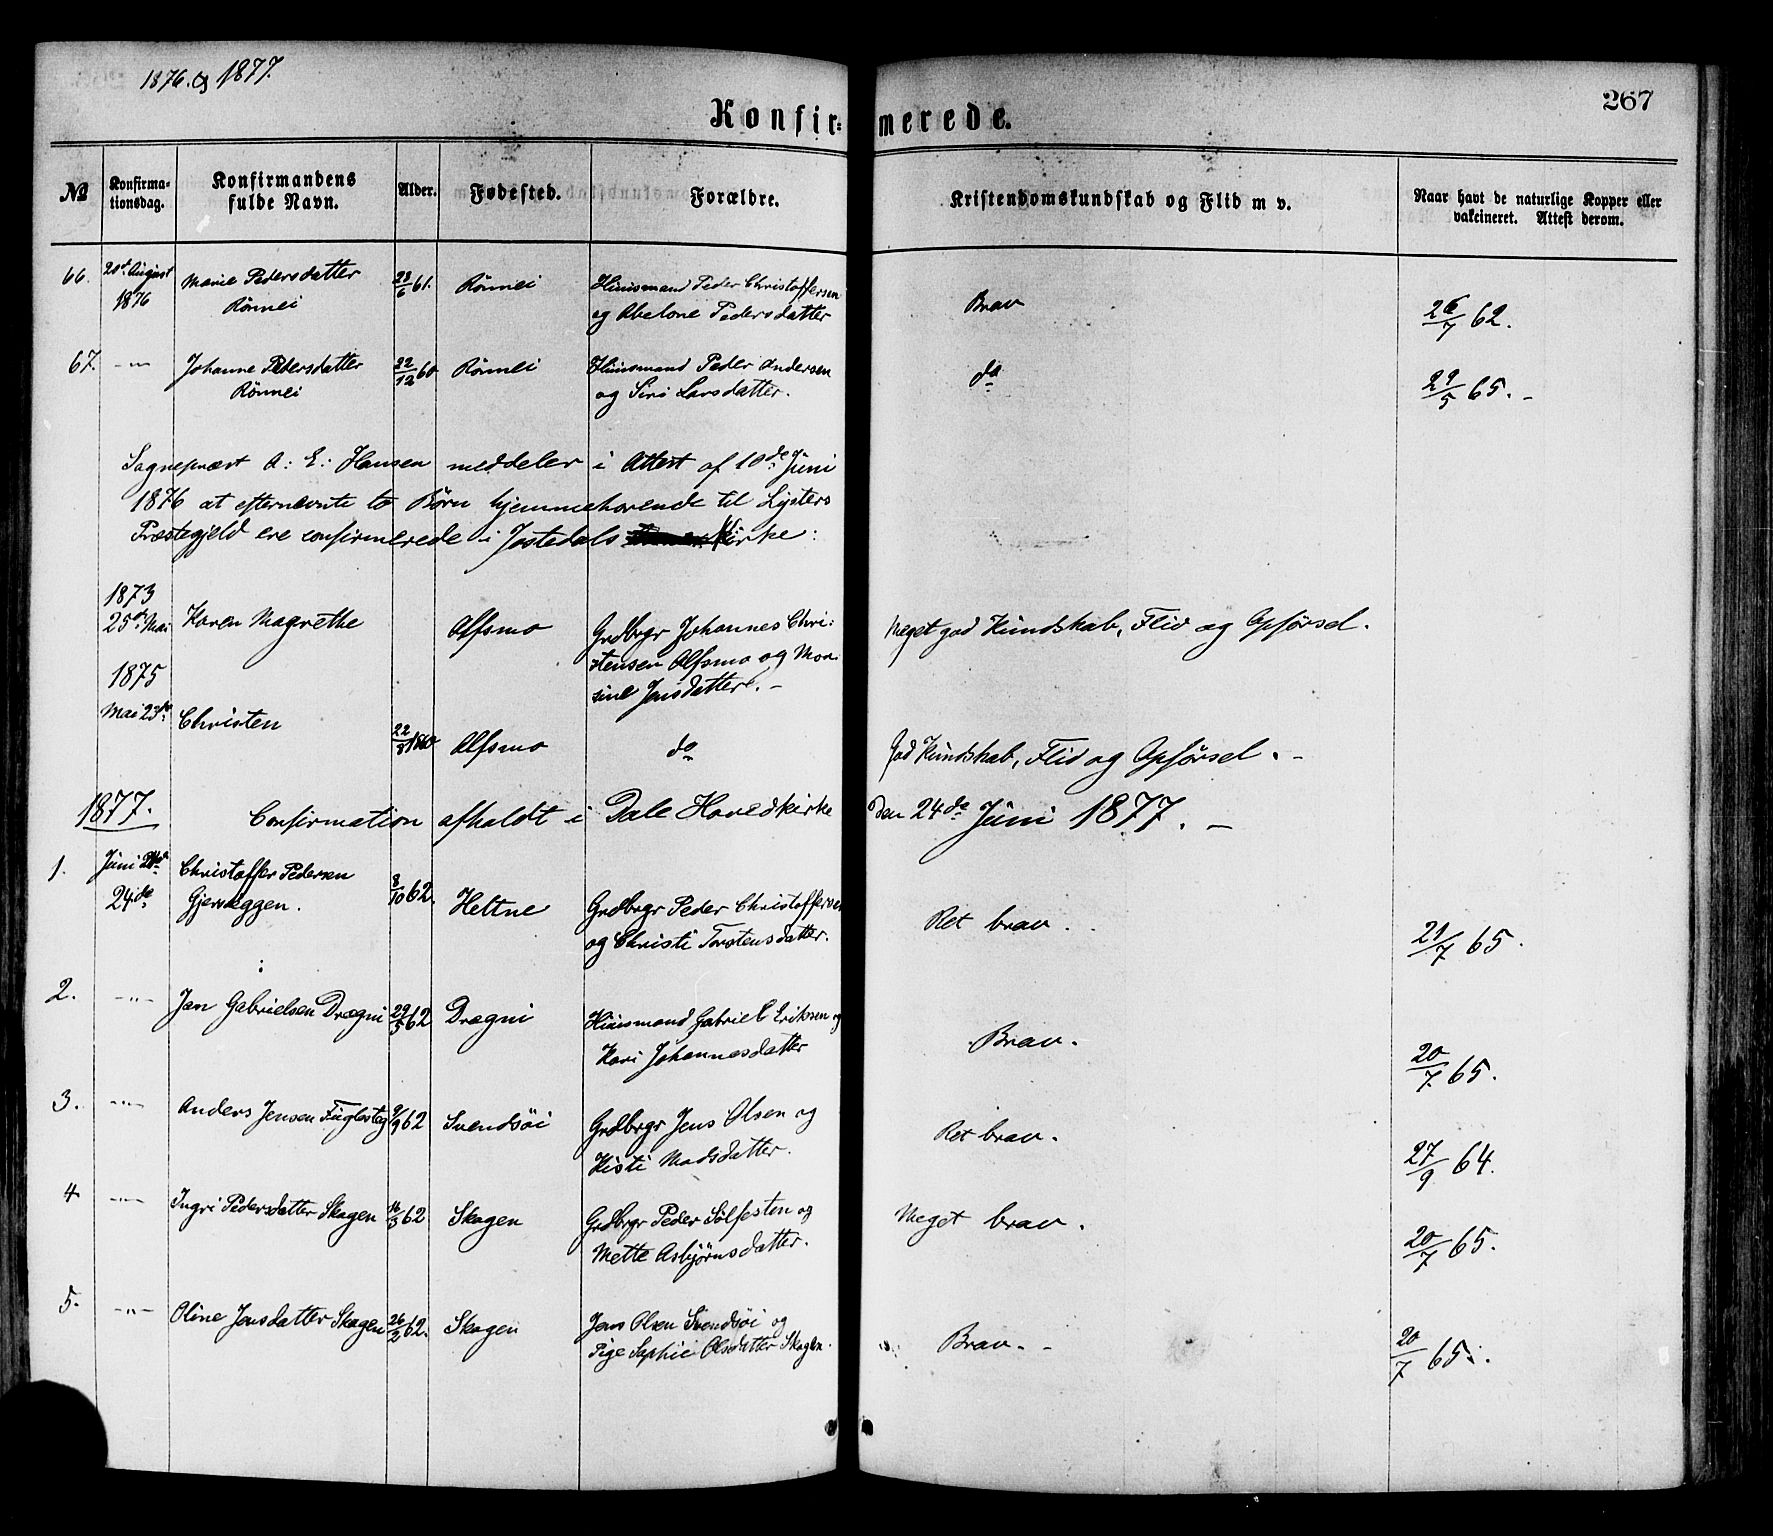 1876. og 1877.
267
Konfir=merede.
№ Konfirma-tionsdag. Konfirmandens fulde Navn. Alder. Fødested. Forældre. Kristendomskundskab og Flid m v. Naar havt de naturlige Kopper eller vakcineret. Attest derom.
66. 20de August Marie Pedersdatter 23/6 61. Rönnei Huusmand Peder Christoffersen Brav 26/7 62.
1876 Rönnei og Abelone Pedersdatter
67. -"- Johanne Pedersdatter 22/12 60 Rönnei Huusmand Peder Andersen do 29/5 65. -
Rönnei og Siri Larsdatter.
Sognepræst A: E: Hansen meddeler i Attest af 10de Juni
1876 at efternævnte to Börn hjemmehörende til Lysters
Præstegjeld ere confirmerede i Jostedals Kirke:
1873
25de Mai Karen Magrethe Alfsmo Grdbrgr Johannes Chri: Meget god Kundskab, Flid og Opförsel.
stensen Alfsmo og Mon
sine Jensdatter. -
1875
Mai 23de Christen 22/8 1860 Alfsmo do God Kundskab, Flid og Opförsel. -
1877. Confirmation afholdt i Dale Hovedkirke den 24de Juni 1877. -
1. Juni Christoffer Pedersen 8/10 62. Heltne Grdbrgr Peder Christoffersen Ret brav. 21/7 65.
24de Gjervæggen. og Christi Torstensdatter.
2. -"- Jan Gabrielsen Drægni 29/5 62 Drægni Huusmand Gabriel Eriksen og Brav. 20/7 65.
Kari Johannesdatter
3. -"- Anders Jensen Fuglesteg 9/9 62 Svendsöi Grdbrgr Jens Olsen og Ret brav. 27/9 64.
Kisti Madsdatter.
4. -"- Ingri Pedersdatter Skagen 16/3 62 Skagen Grdbrgr Peder Sölfesten og Meget brav. 20/7 65.
Mette Asbjörnsdatter.
5. -"- Oline Jensdatter Skagen 26/2 62. Skagen Jens Olsen Svendsöi og Brav. - 20/7 65.
Pige Sophie Olsdatter Skagen.